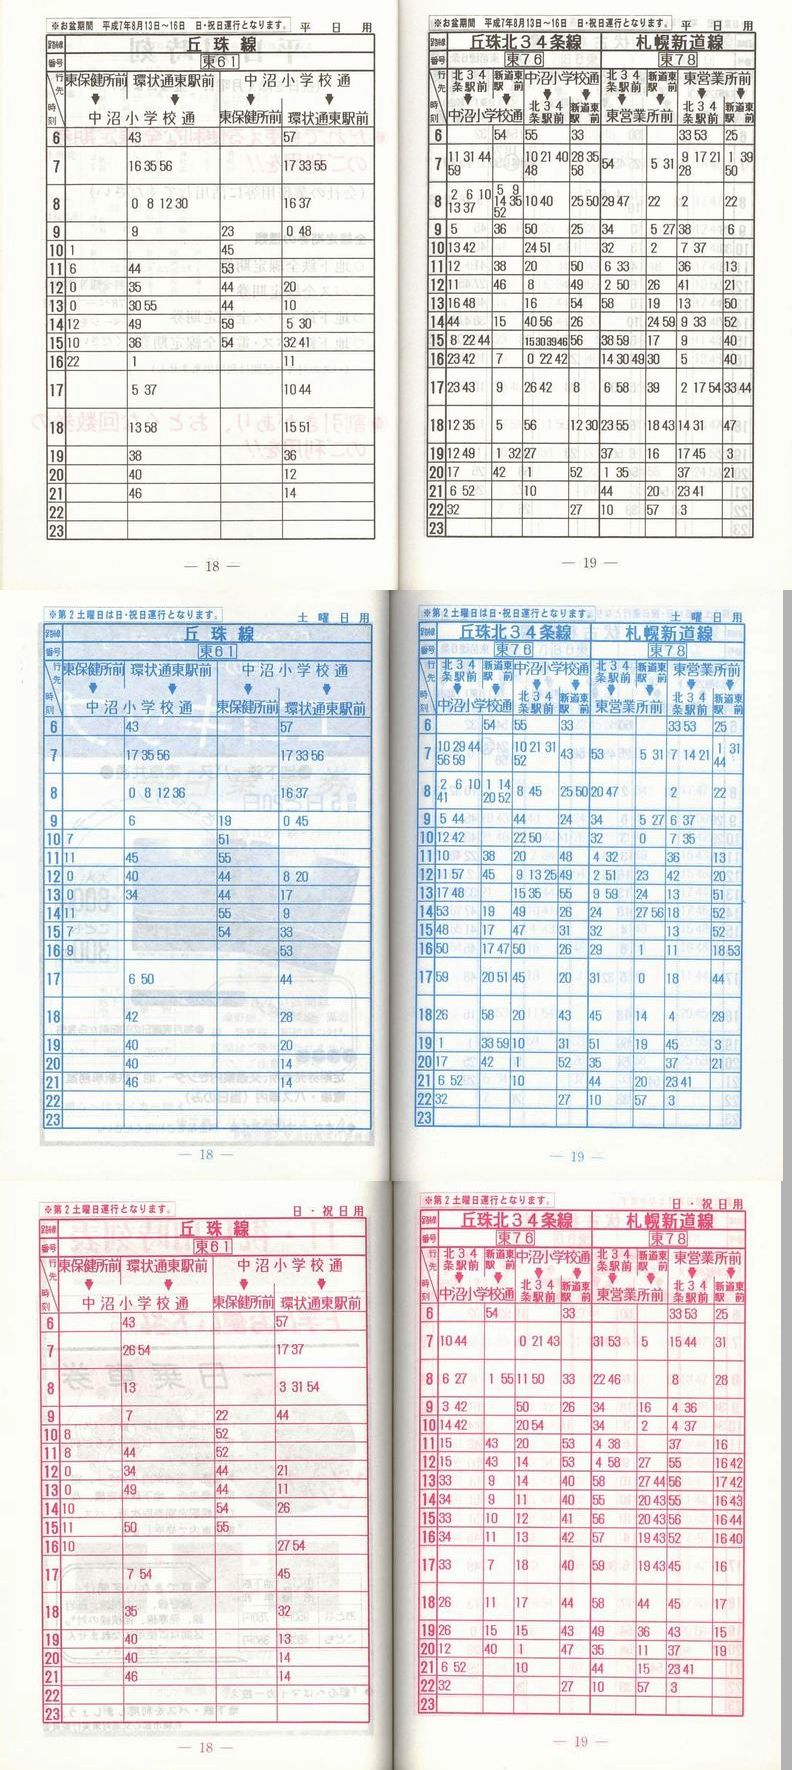 ※お盆期間 平成7年8月13日～16日 日・祝日運行となります。 平日用
路線 丘珠線
番号 東61
行先 東保健所前 環状通東駅前 中沼小学校通
時刻 中沼小学校通 東保健所前 環状通東駅前
6 43 57
7 16 35 56 17 33 55
8 0 8 12 30 16 37
9 9 23 0 48
10 1 45
11 6 44 53
12 0 35 44 20
13 0 30 55 44 10
14 12 49 59 5 30
15 10 36 54 32 41
16 22 1 11
17 5 37 10 44
18 13 58 15 51
19 38 36
20 40 12
21 46 14
22
23
— 18 —
※お盆期間 平成7年8月13日～16日 日・祝日運行となります。 平日用
路線 丘珠北34条線 札幌新道線
番号 東76 東78
行先 北34条駅前 新道東駅前 中沼小学校通 北34条駅前 新道東駅前 東営業所前
時刻 中沼小学校通 北34条駅前 新道東駅前 東営業所前 北34条駅前 新道東駅前
6 54 55 33 33 53 25
7 11 31 44 59 10 21 40 48 28 35 58 54 5 31 9 17 21 28 1 39 50
8 2 6 10 13 37 5 9 14 35 52 10 40 25 50 29 47 22 2 22
9 5 36 50 25 34 5 27 38 6
10 13 42 24 51 32 2 7 37
11 12 38 20 50 6 33 36 13
12 11 46 8 49 2 50 26 41 21
13 16 48 16 54 58 19 13 50
14 44 15 40 56 26 24 59 9 33 52
15 8 22 44 15 30 39 46 56 38 59 17 9 40
16 23 42 7 0 22 42 14 30 49 30 5 40
17 23 43 9 26 42 8 6 58 39 2 17 54 33 44
18 12 35 5 56 12 30 23 55 18 43 14 31 47
19 12 49 1 32 27 37 16 17 45 3
20 17 42 1 52 1 35 37 21
21 6 52 10 44 20 23 41
22 32 27 10 57 3
23
— 19 —
※第2土曜日は日・祝日運行となります。 土曜日用
路線 丘珠線
番号 東61
行先 東保健所前 環状通東駅前 中沼小学校通
時刻 中沼小学校通 東保健所前 環状通東駅前
6 43 57
7 17 35 56 17 33 56
8 0 8 12 36 16 37
9 6 19 0 45
10 7 51
11 11 45 55
12 0 40 44 8 20
13 0 34 44 17
14 11 55 9
15 7 54 33
16 9 53
17 6 50 44
18 42 28
19 40 20
20 40 14
21 46 14
22
23
— 18 —
※第2土曜日は日・祝日運行となります。 土曜日用
路線 丘珠北34条線 札幌新道線
番号 東76 東78
行先 北34条駅前 新道東駅前 中沼小学校通 北34条駅前 新道東駅前 東営業所前
時刻 中沼小学校通 北34条駅前 新道東駅前 東営業所前 北34条駅前 新道東駅前
6 54 55 33 33 53 25
7 10 29 44 56 59 10 21 31 52 43 53 5 31 7 14 21 1 31 44
8 2 6 10 41 1 14 20 52 8 45 25 50 20 47 2 22
9 5 44 44 24 34 5 27 6 37
10 12 42 22 50 32 0 7 35
11 10 38 20 48 4 32 36 13
12 11 57 45 9 13 25 49 2 51 23 42 20
13 17 48 15 35 55 9 59 24 13 51
14 53 19 49 26 24 27 56 18 52
15 48 17 47 31 32 4 13 52
16 50 17 47 50 26 29 1 11 18 53
17 59 20 51 45 20 31 0 18 44
18 26 58 20 43 45 14 4 29
19 1 33 59 10 31 51 19 45 3
20 17 42 1 52 35 37 21
21 6 52 10 44 20 23 41
22 32 27 10 57 3
23
— 19 —
※第2土曜日運行となります。 日・祝日用
路線 丘珠線
番号 東61
行先 東保健所前 環状通東駅前 中沼小学校通
時刻 中沼小学校通 東保健所前 環状通東駅前
6 43 57
7 26 54 17 37
8 13 3 31 54
9 7 22 44
10 8 52
11 8 44 52
12 0 34 44 21
13 0 49 44 11
14 10 54 26
15 11 50 55
16 10 27 54
17 7 54 45
18 35 32
19 40 13
20 40 14
21 46 14
22
23
— 18 —
※第2土曜日運行となります。 日・祝日用
路線 丘珠北34条線 札幌新道線
番号 東76 東78
行先 北34条駅前 新道東駅前 中沼小学校通 北34条駅前 新道東駅前 東営業所前
時刻 中沼小学校通 北34条駅前 新道東駅前 東営業所前 北34条駅前 新道東駅前
6 54 33 33 53 25
7 10 44 0 21 43 31 53 5 15 44 31
8 6 27 1 55 11 50 33 22 46 8 28
9 3 42 50 26 34 16 4 36
10 14 42 20 54 34 2 4 37
11 15 43 20 53 4 38 37 16
12 15 43 14 53 4 58 27 55 16 42
13 33 9 14 40 58 27 44 56 17 42
14 34 9 11 40 55 20 43 55 16 43
15 33 10 12 41 56 20 43 56 16 44
16 34 11 13 42 57 19 43 52 16 40
17 33 7 18 40 59 19 43 45 16
18 26 11 17 44 58 44 45 17
19 26 15 15 43 49 36 43 15
20 12 40 1 47 35 11 37 19
21 6 52 10 44 15 23 41
22 32 27 10 57 3
23
— 19 —